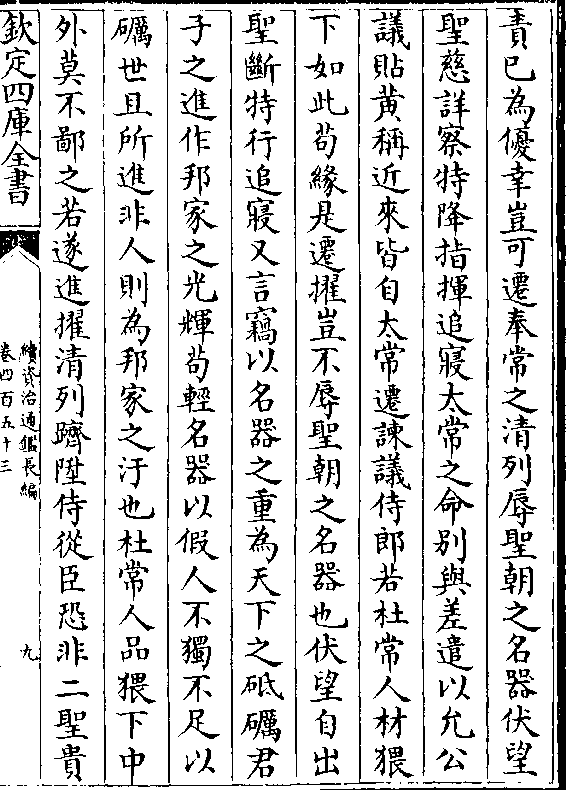 責已為優幸豈可遷奉常之清列辱聖朝之名器伏望
聖慈詳察特降指揮追寢太常之命别與差遣以允公
議貼黄稱近來皆自太常遷諫議侍郎若杜常人材猥
下如此苟緣是遷擢豈不辱聖朝之名器也伏望自出
聖斷特行追寢又言竊以名器之重為天下之砥礪君
子之進作邦家之光輝苟輕名器以假人不獨不足以
礪世且所進非人則為邦家之汙也杜常人品猥下中
外莫不鄙之若遂進擢清列躋陞侍從臣恐非二聖貴
欽定四庫全書
續資治通鑑長編
卷四百五十三
九